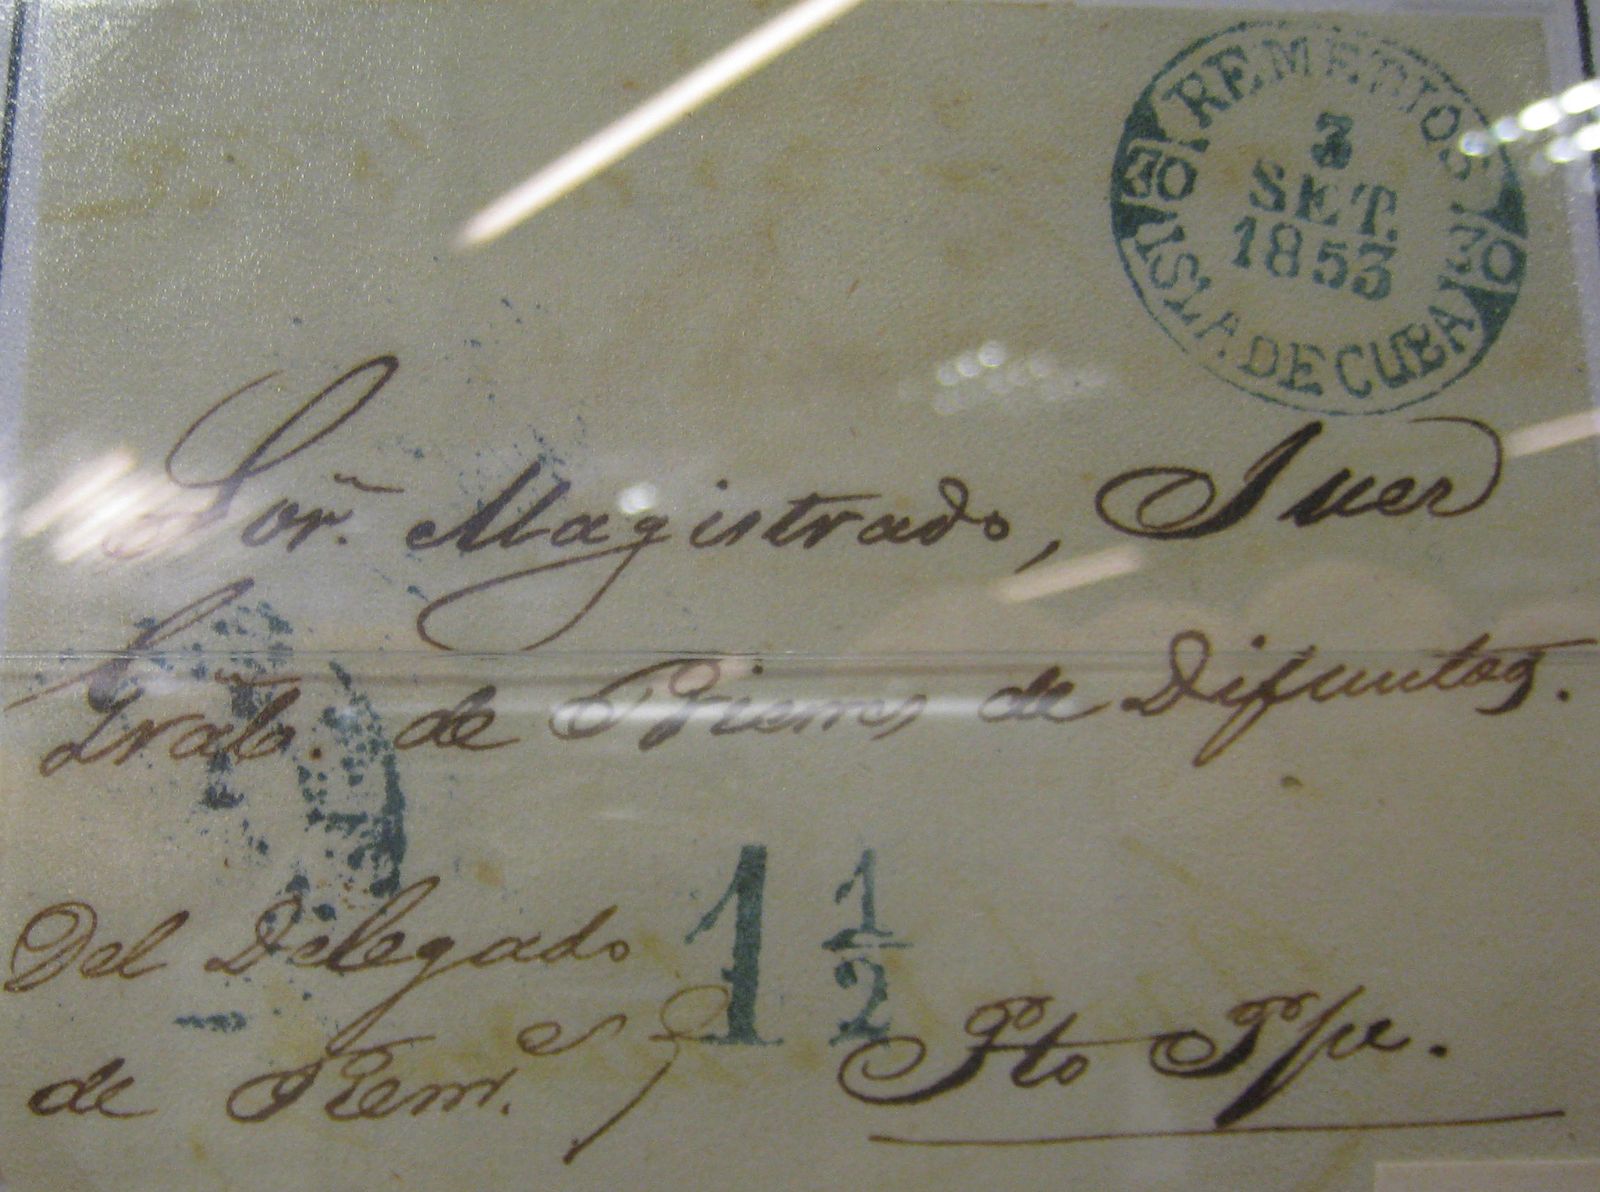 REMEDIOS
30 30
3
SET.
1853
ISLA DE CUBA
Sor. Magistrado, Juez
Gral. de Bienes de Difuntos.
Del Delegado
de Rem.s
1 1/2
Pto Ppe.